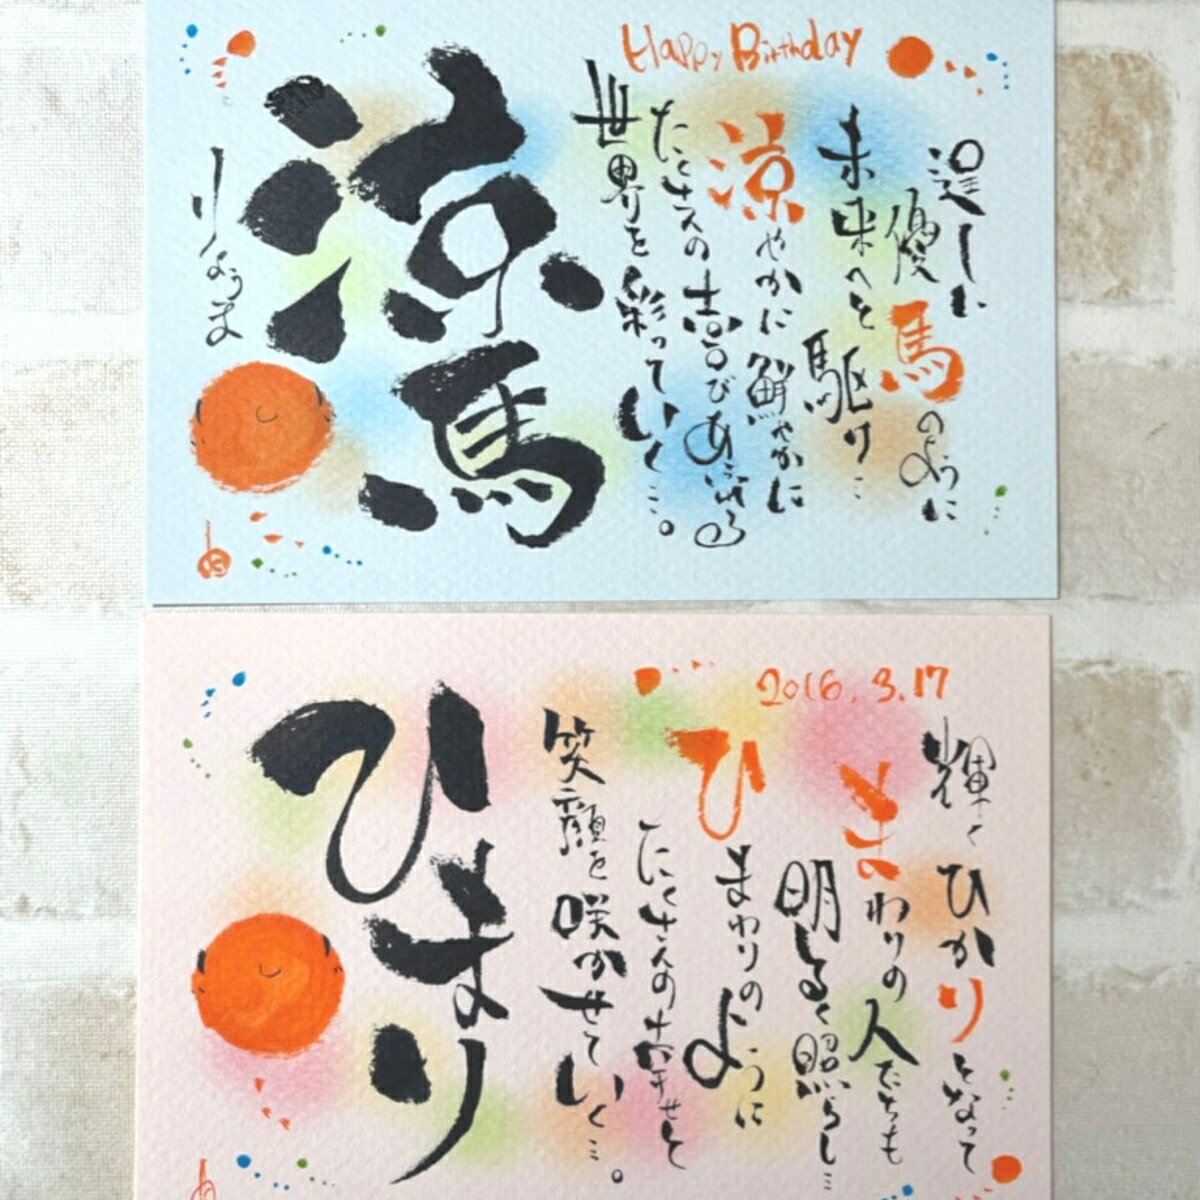 Happy Birthday
涼馬
りょうま
逞しい
優馬のように
未来へと
駆け…
涼やかに鮮やかに
たくさんの喜びあふれる
世界を彩っていく…。
2016.3.17
ひまり
輝くひかりとなって
まわりの人たちも
明るく照らし…
ひまわりのように
たくさんの幸せと
笑顔を咲かせていく…。